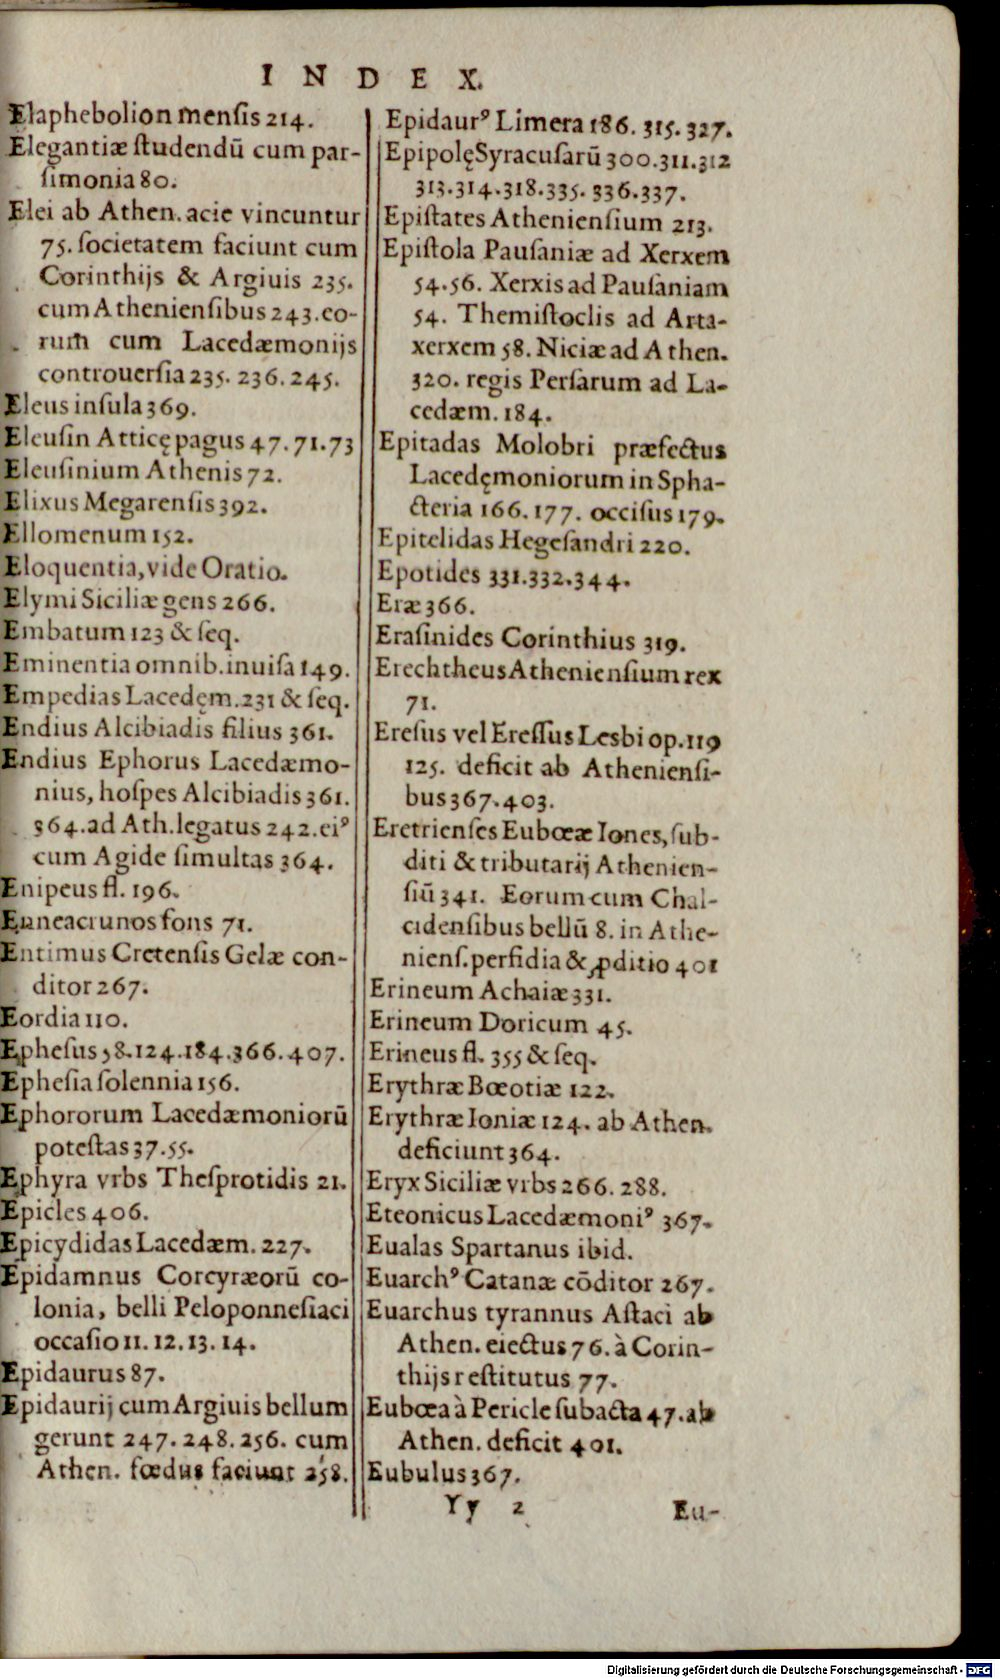 INDEX.
Elaphebolion mensis 214.
Elegantiæ ſtudendū cum par-
ſimonia 80.
Elei ab Athen. acie vincuntur
75. ſocietatem faciunt cum
Corinthijs & Argiuis 235.
cum Athenienſibus 243. eo-
rum̃ cum Lacedæmonijs
controuerſia 235. 236. 245.
Eleus inſula 369.
Eleuſin Atticę pagus 47. 71. 73
Eleuſinium Athenis 72.
Elixus Megarenſis 392.
Ellomenum 152.
Eloquentia, vide Oratio.
Elymi Siciliæ gens 266.
Embatum 123 & ſeq.
Eminentia omnib. inuiſa 149.
Empedias Lacedęm. 231 & ſeq.
Endius Alcibiadis filius 361.
Endius Ephorus Lacedæmo-
nius, hoſpes Alcibiadis 361.
364. ad Ath. legatus 242. eiꝰ
cum Agide ſimultas 364.
Enipeus fl. 196.
Enneacrunos fons 71.
Entimus Cretenſis Gelæ con-
ditor 267.
Eordia 110.
Epheſus 58. 124. 184. 366. 407.
Epheſia ſolennia 156.
Ephororum Lacedæmoniorū
poteſtas 37. 55.
Ephyra vrbs Theſprotidis 21.
Epicles 406.
Epicydidas Lacedæm. 227.
Epidamnus Corcyræorū co-
lonia, belli Peloponneſiaci
occaſio 11. 12. 13. 14.
Epidaurus 87.
Epidaurij cum Argiuis bellum
gerunt 247. 248. 256. cum
Athen. fœdus faciunt 258.
Epidaurꝰ Limera 186. 315. 327.
Epipolę Syracuſarū 300. 311. 312
313. 314. 318. 335. 336. 337.
Epiſtates Athenienſium 213.
Epiſtola Pauſaniæ ad Xerxem
54. 56. Xerxis ad Pauſaniam
54. Themiſtoclis ad Arta-
xerxem 58. Niciæ ad Athen.
320. regis Perſarum ad La-
cedæm. 184.
Epitadas Molobri præfectus
Lacedęmoniorum in Spha-
cteria 166. 177. occiſus 179.
Epitelidas Hegeſandri 220.
Epotides 331. 332. 344.
Eræ 366.
Eraſinides Corinthius 319.
Erechtheus Athenienſium rex
71.
Ereſus vel Ereſſus Lesbi op. 119
125. deficit ab Athenienſi-
bus 367. 403.
Eretrienſes Eubœæ Iones, ſub-
diti & tributarij Athenien-
ſiū 341. Eorum cum Chal-
cidenſibus bellū 8. in Athe-
nienſ. perfidia & ꝓditio 401
Erineum Achaiæ 331.
Erineum Doricum 45.
Erineus fl. 355 & ſeq.
Erythræ Bœotiæ 122.
Erythræ Ioniæ 124. ab Athen.
deficiunt 364.
Eryx Siciliæ vrbs 266. 288.
Eteonicus Lacedæmoniꝰ 367.
Eualas Spartanus ibid.
Euarchꝰ Catanæ cōditor 267.
Euarchus tyrannus Aſtaci ab
Athen. eiectus 76. à Corin-
thijs reſtitutus 77.
Eubœa à Pericle ſubacta 47. ab
Athen. deficit 401.
Eubulus 367.
Yy 2 Eu-
Digitalisierung gefördert durch die Deutsche Forschungsgemeinschaft - DFG